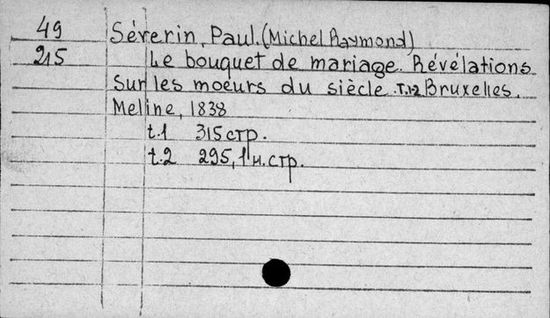 49 Séverin, Paul. (Michel Raymond)
215 Le bouquet de mariage. Révélations
sur les moeurs du siècle. T.1,2 Bruxelles.
Meline, 1838
t.1 315 стр.
t.2 295, 1 н. стр.